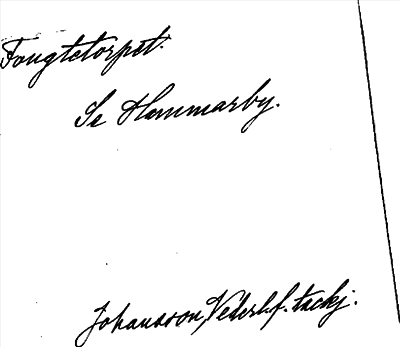 Fougtetorpet.
Se Hammarby.
Johansson, Vederl.f. tackj.